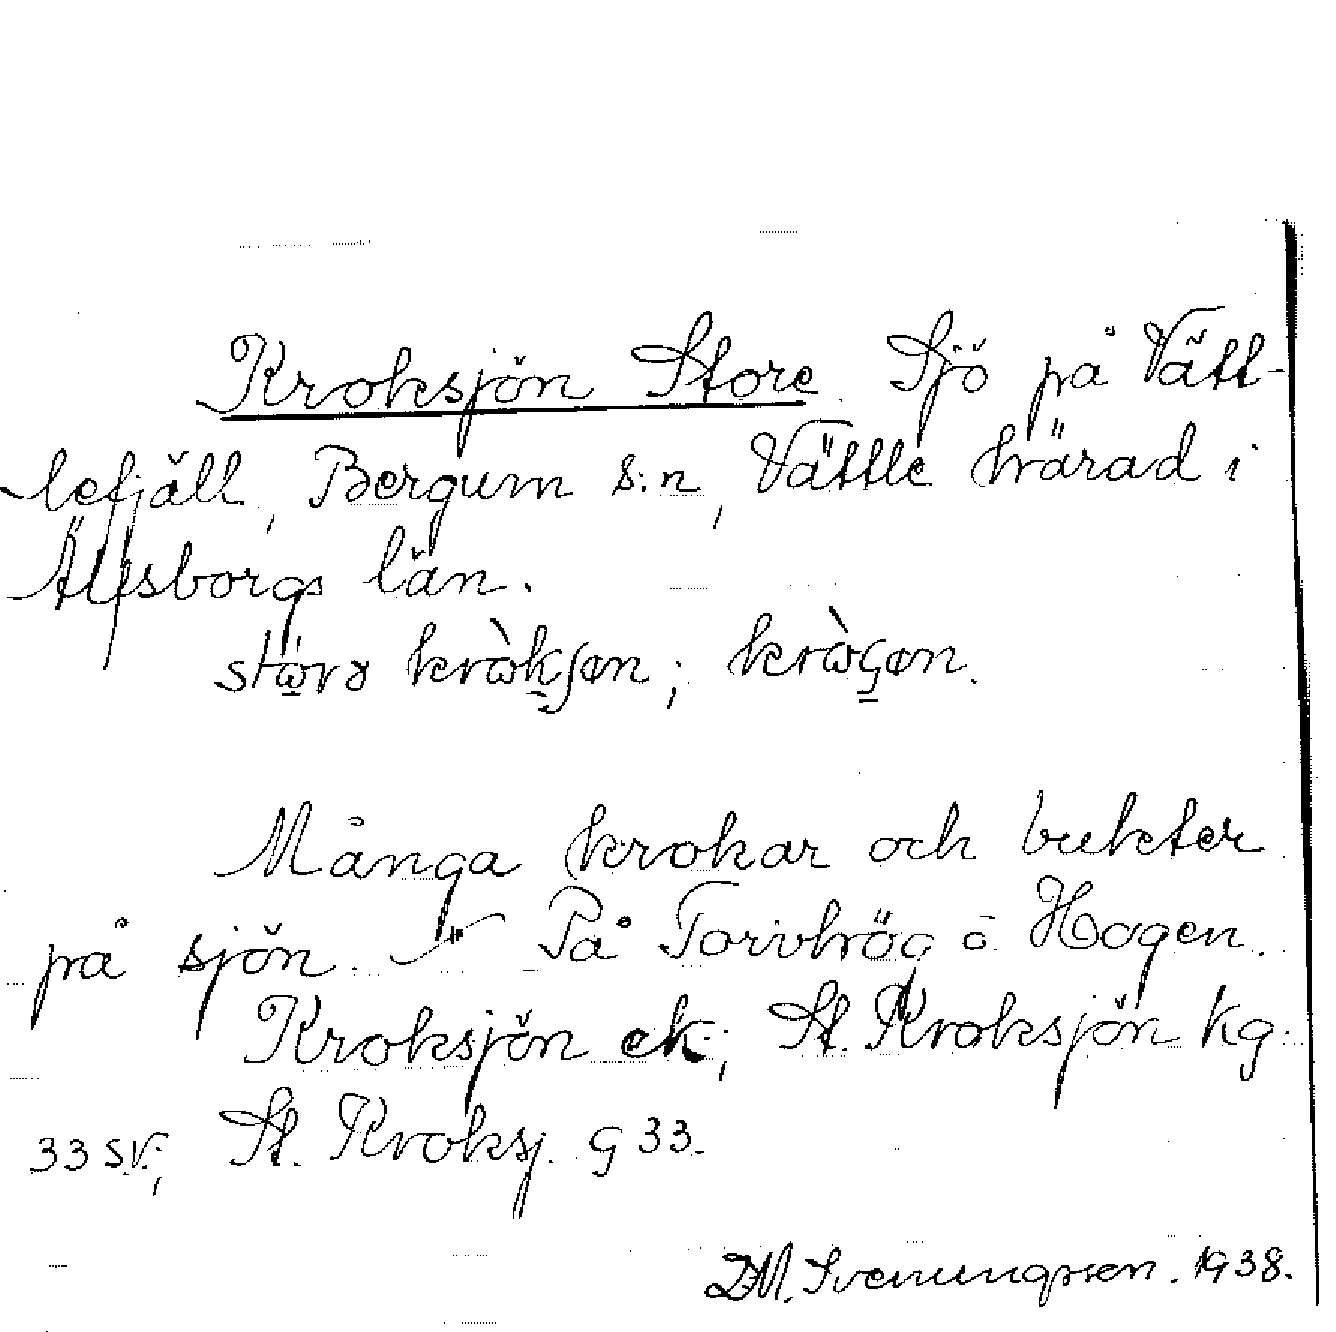 Kroksjön Store. Sjö på Vätt-
lefjäll, Bergum s:n, Vättle härad i
Älfsborgs län.
Många krokar och bukter
på sjön. På Torvhög o. Hagen.
Kroksjön ek; St. Kroksjön kg.
33 sv.; St. Kroksj. g 33.
D.M. Svenungsson. 1938.